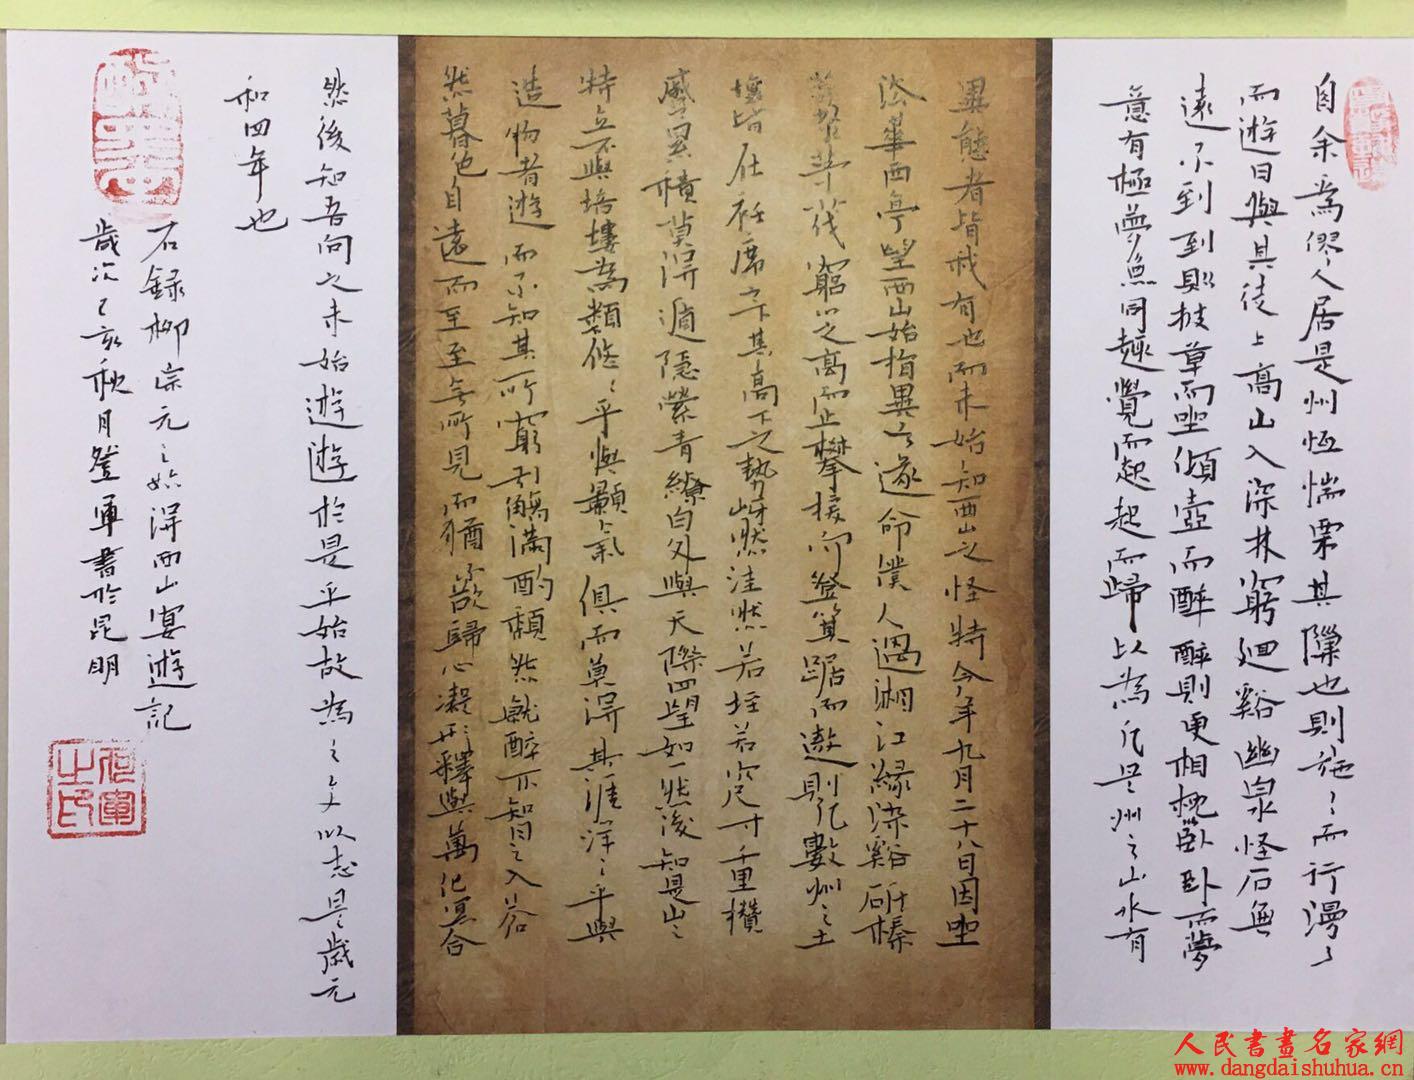 自余為僇人居是州恒惴栗其隟也則施〻而行漫〻
而遊日與其徒上高山入深林窮廻谿幽泉怪石無
遠不到到則披草而坐傾壺而醉醉則更相枕臥卧而夢
意有極夢亦同趣覺而起起而歸以為凡是州之山水有
異態者皆我有也而未始知西山之怪特今年九月二十八日因坐
法華西亭望西山始指異之遂命僕人過湘江緣染谿斫榛
莽焚茅茷窮山之高而止攀援而登箕踞而遨則凡數州之土
壤皆在衽席之下其高下之勢岈然洼然若垤若穴尺寸千里攢
蹙累積莫得遁隱縈青繚白外與天際四望如一然後知是山之
特立不與培塿為類悠〻乎與顥氣俱而莫得其涯洋〻乎與
造物者遊而不知其所窮引觴滿酌頹然就醉不知日之入蒼
然暮色自遠而至至無所見而猶不欲歸心凝形釋與萬化冥合
然後知吾向之未始遊遊於是乎始故為之文以志是歲元
和四年也
右錄柳宗元之始得西山宴遊記
歲次己亥秋月登軍書於昆明
人民書畫名家網
www.dangdaishuhua.cn